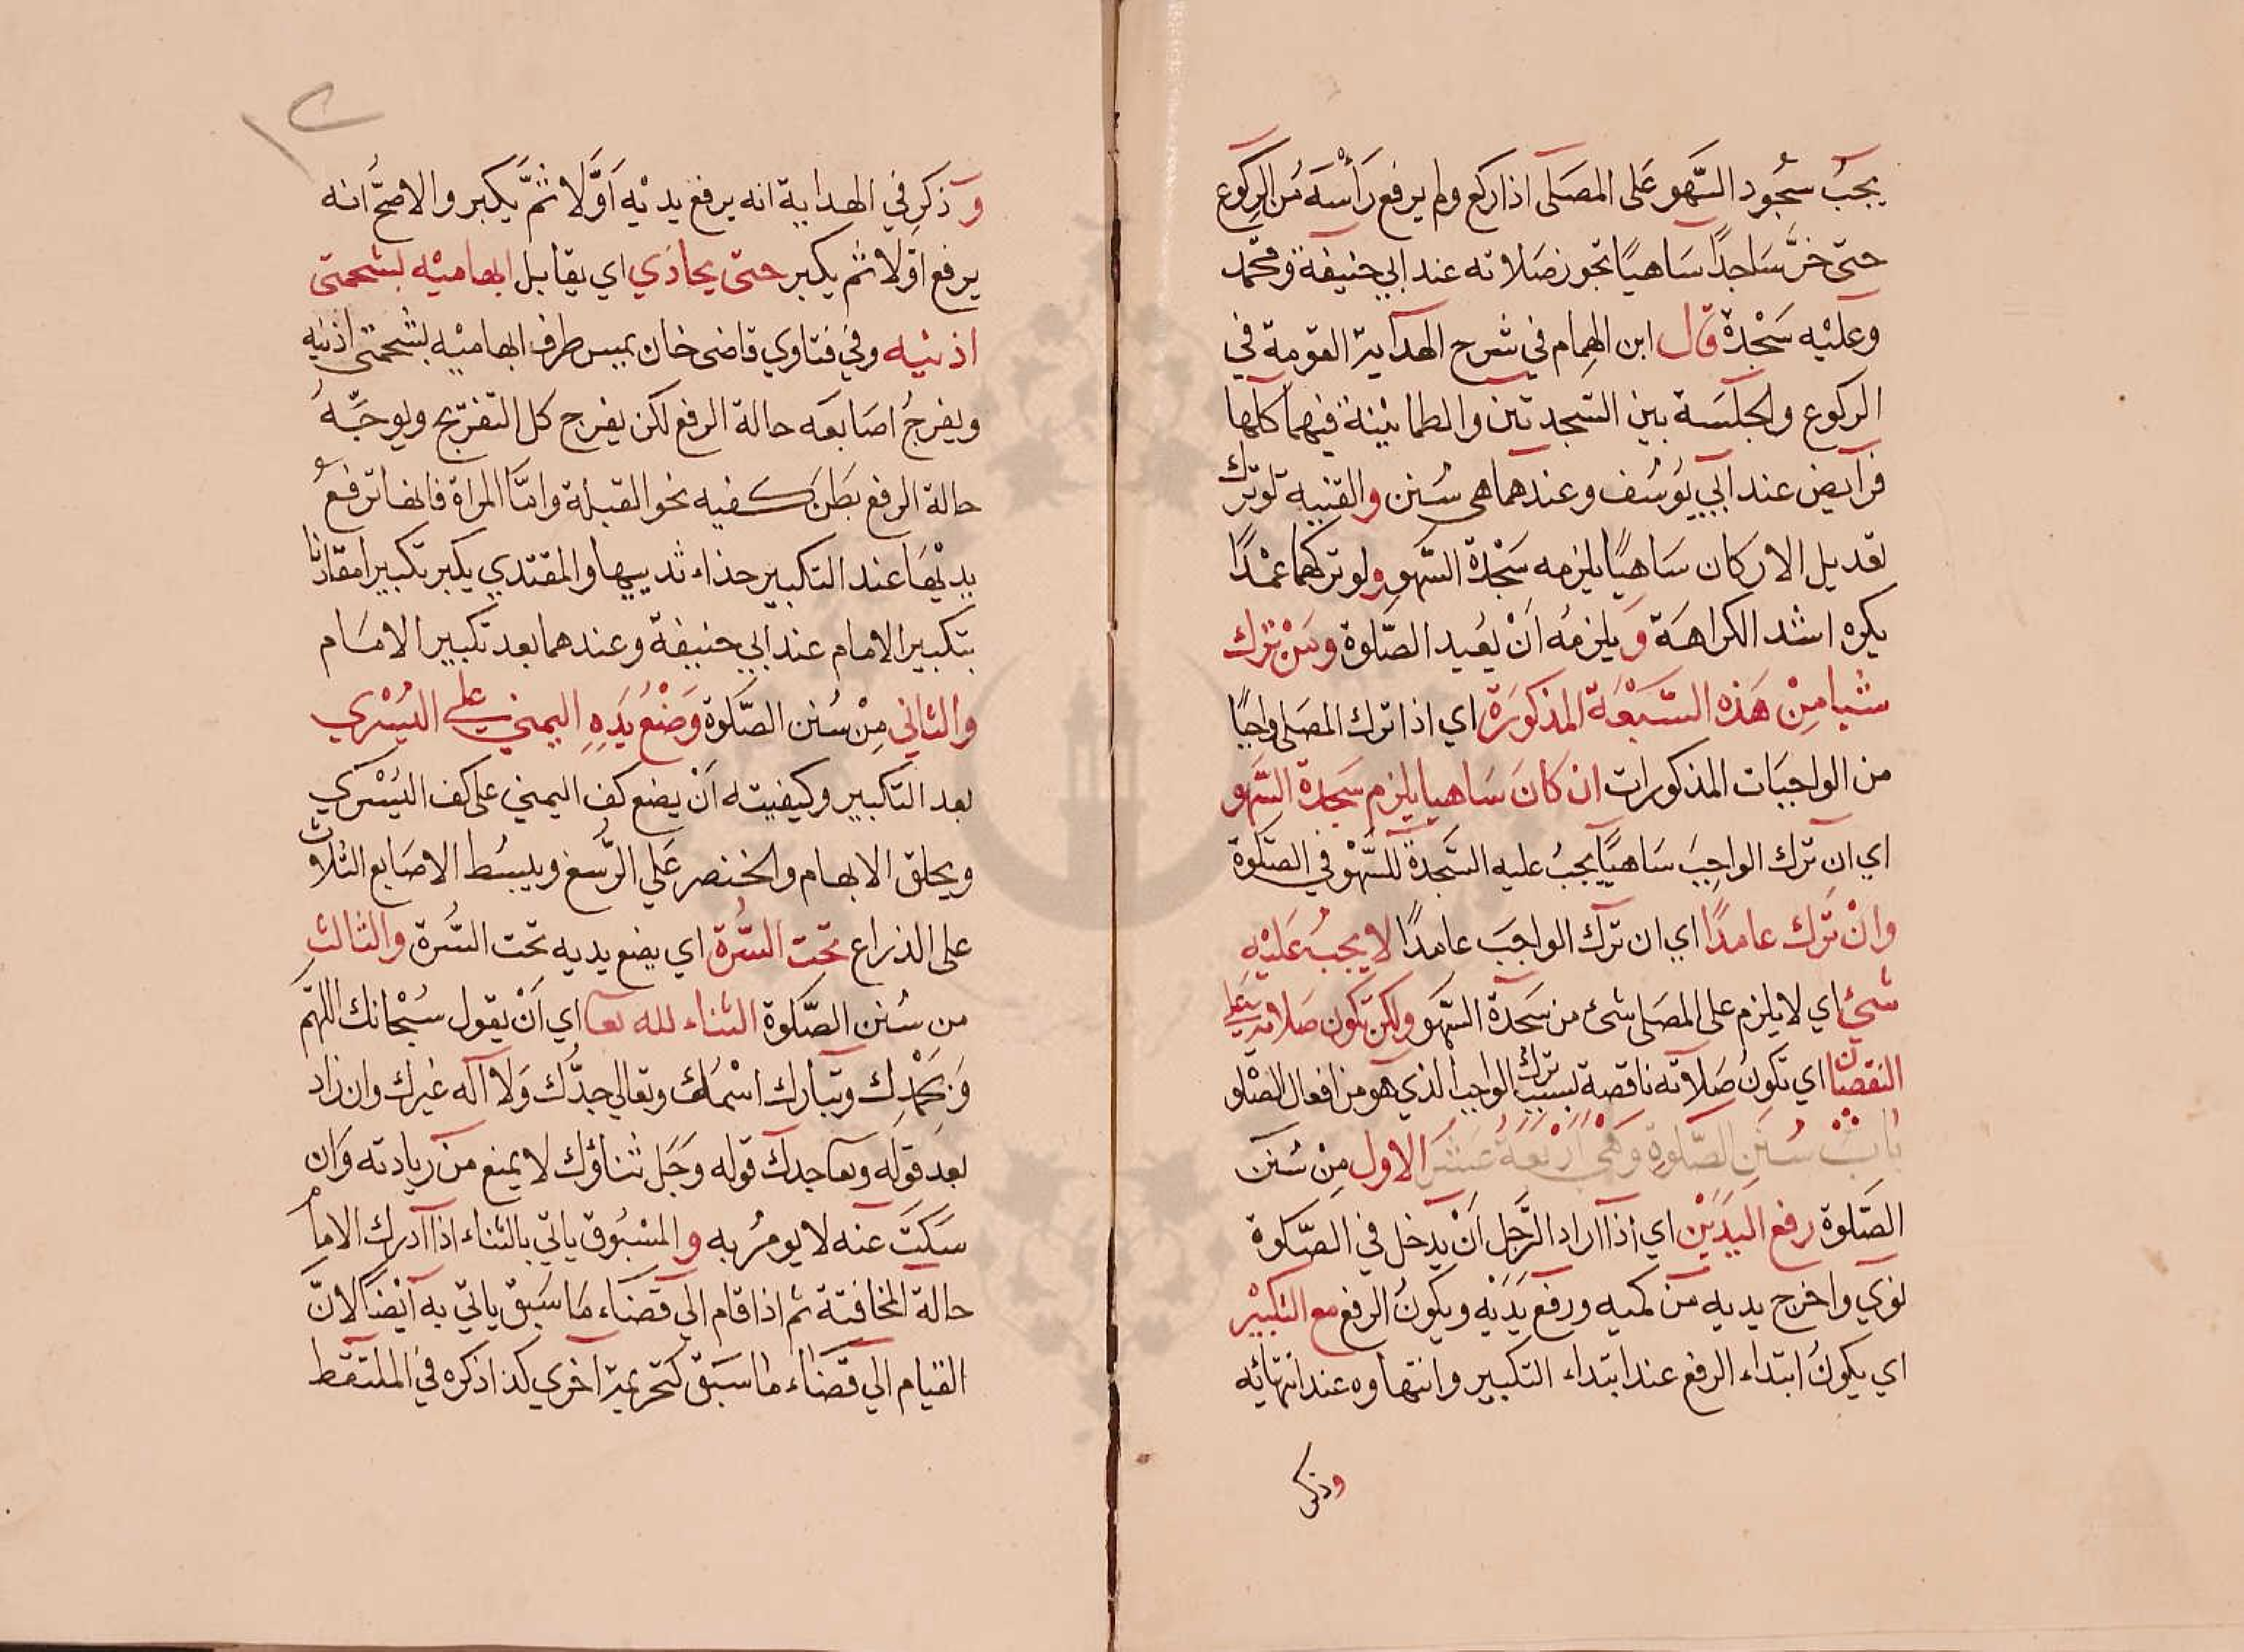 يجبُ سجُود السَّهو عَلى المصَلى اذا ركع ولم يرفع رَأْسَه مُن الركوع
حتى خرَّ سَاجدًا سَاهيًا تجوز صَلاته عند ابي حنيفة ومحمّد
وعليْه سَجْدة قال ابن الهِمام في شرح الهدايَة القومة في
الركوع والجلسَة بين السّجدتين والطمانينة فيهما كلها
فرآيض عند ابي يُوسُف وعندهما هى سُنن والقنيه لو ترك
تعديل الاركان سَاهيًا يلزمه سَجْدة السّهو ولو تركهما عمْدًا
يكره اشد الكراهَة وَيلزمُه اَنْ يُعيد الصَّلوة ومَنْ ترك
شيا مِنْ هَذه السَّبعَة المذكورَة اي اذا ترك المصَلى واجبًا
من الواجبَات المذكورات ان كانَ سَاهيا يلزم سَجدة السَّهو
اي ان ترك الواجِبَ سَاهيًا يجبُ عليه السَّجدة للسَّهْو في الصَّلوة
وانْ تَرك عامدًا اي ان ترك الواجبَ عامدًا لا يجبُ عَليْهِ
شئ اي لا يلزم على المصَلى شئ من سَجدة السَّهو ولكن تكون صَلاته على
النقصان اي تكونُ صَلاته ناقصة بسبب ترك الواجب الذي هو من افعال الصّلو
بابُ سُنَنِ الصَّلوةِ وَهيَ اَرْبَعَةُ عَشَرَ الاول مِنْ سُنن
الصَّلوة رفع اليدَيْن اي اذا اراد الرَّجل اَنْ يدخل في الصَّلوة
نوي واخرج يديه من كميه ورفع يَدَيْه ويكونُ الرفع مع التكبيْر
اي يكونُ ابتداء الرفع عند ابتداء التكبير وانتهاوه عند انتهائه
وذكر
وَذكرِ في الهداية انه يرفع يديْه اَوَّلا ثمَّ يكبر والاصحّ انه
يرفع اوّلا ثم يكبر حتى يحاذي اي يقابل ابهاميْه لشحمتى
اذنيه وفي فتاوي قاضى خان يمس طرف ابهاميْه بشحمتى اذنيْه
ويفرجُ اصَابعَه حالة الرفع لكن يفرج كل التفريج ويوجّهُ
حالة الرفع بطَن كفيه نحو القبلة وامّا المراة فانها ترفعُ
يديْهَا عند التكبير حذاء ثدييها والمقتدي يكبر تكبيرا مقارنا
بتكبير الامام عند ابي حنيفة وعندهما بعد تكبير الامَام
والثاني مِنْ سُنن الصَّلوة وَضْعُ يَدِهِ اليمني علي اليُسْري
بعد التكبير وكيفيته اَنْ يضع كف اليمني على كف اليُسْري
ويحلق الابهام والخنصر عَلي الرُّسغ ويبسُط الاصَابع الثلاث
على الذراع تحت السُّرة اي يضع يديه تحت السُّرة والثالث
من سُنن الصَّلوة الثناء لله تعا اي اَنْ يقول سُبْحانك اللّهمّ
وَبحَمْدِك وتبارك اسْمُك وتعالي جدُّك وَلا آله غيرك وان زاد
بعد قوله وتعا جدك قوله وَجَل ثناؤك لا يمنع من زيادته وان
سَكتَ عنه لا يومرُ به والمسْبُوق ياتي بالثناء اذا ادرك الامامُ
حالة المخافتة ثم اذا قام الي قضَاء مَا سَبق ياتي به ايْضًا لانّ
القيام الي قضَاء ما سَبق كتحريمة اخري كذا ذكره في الملتقط